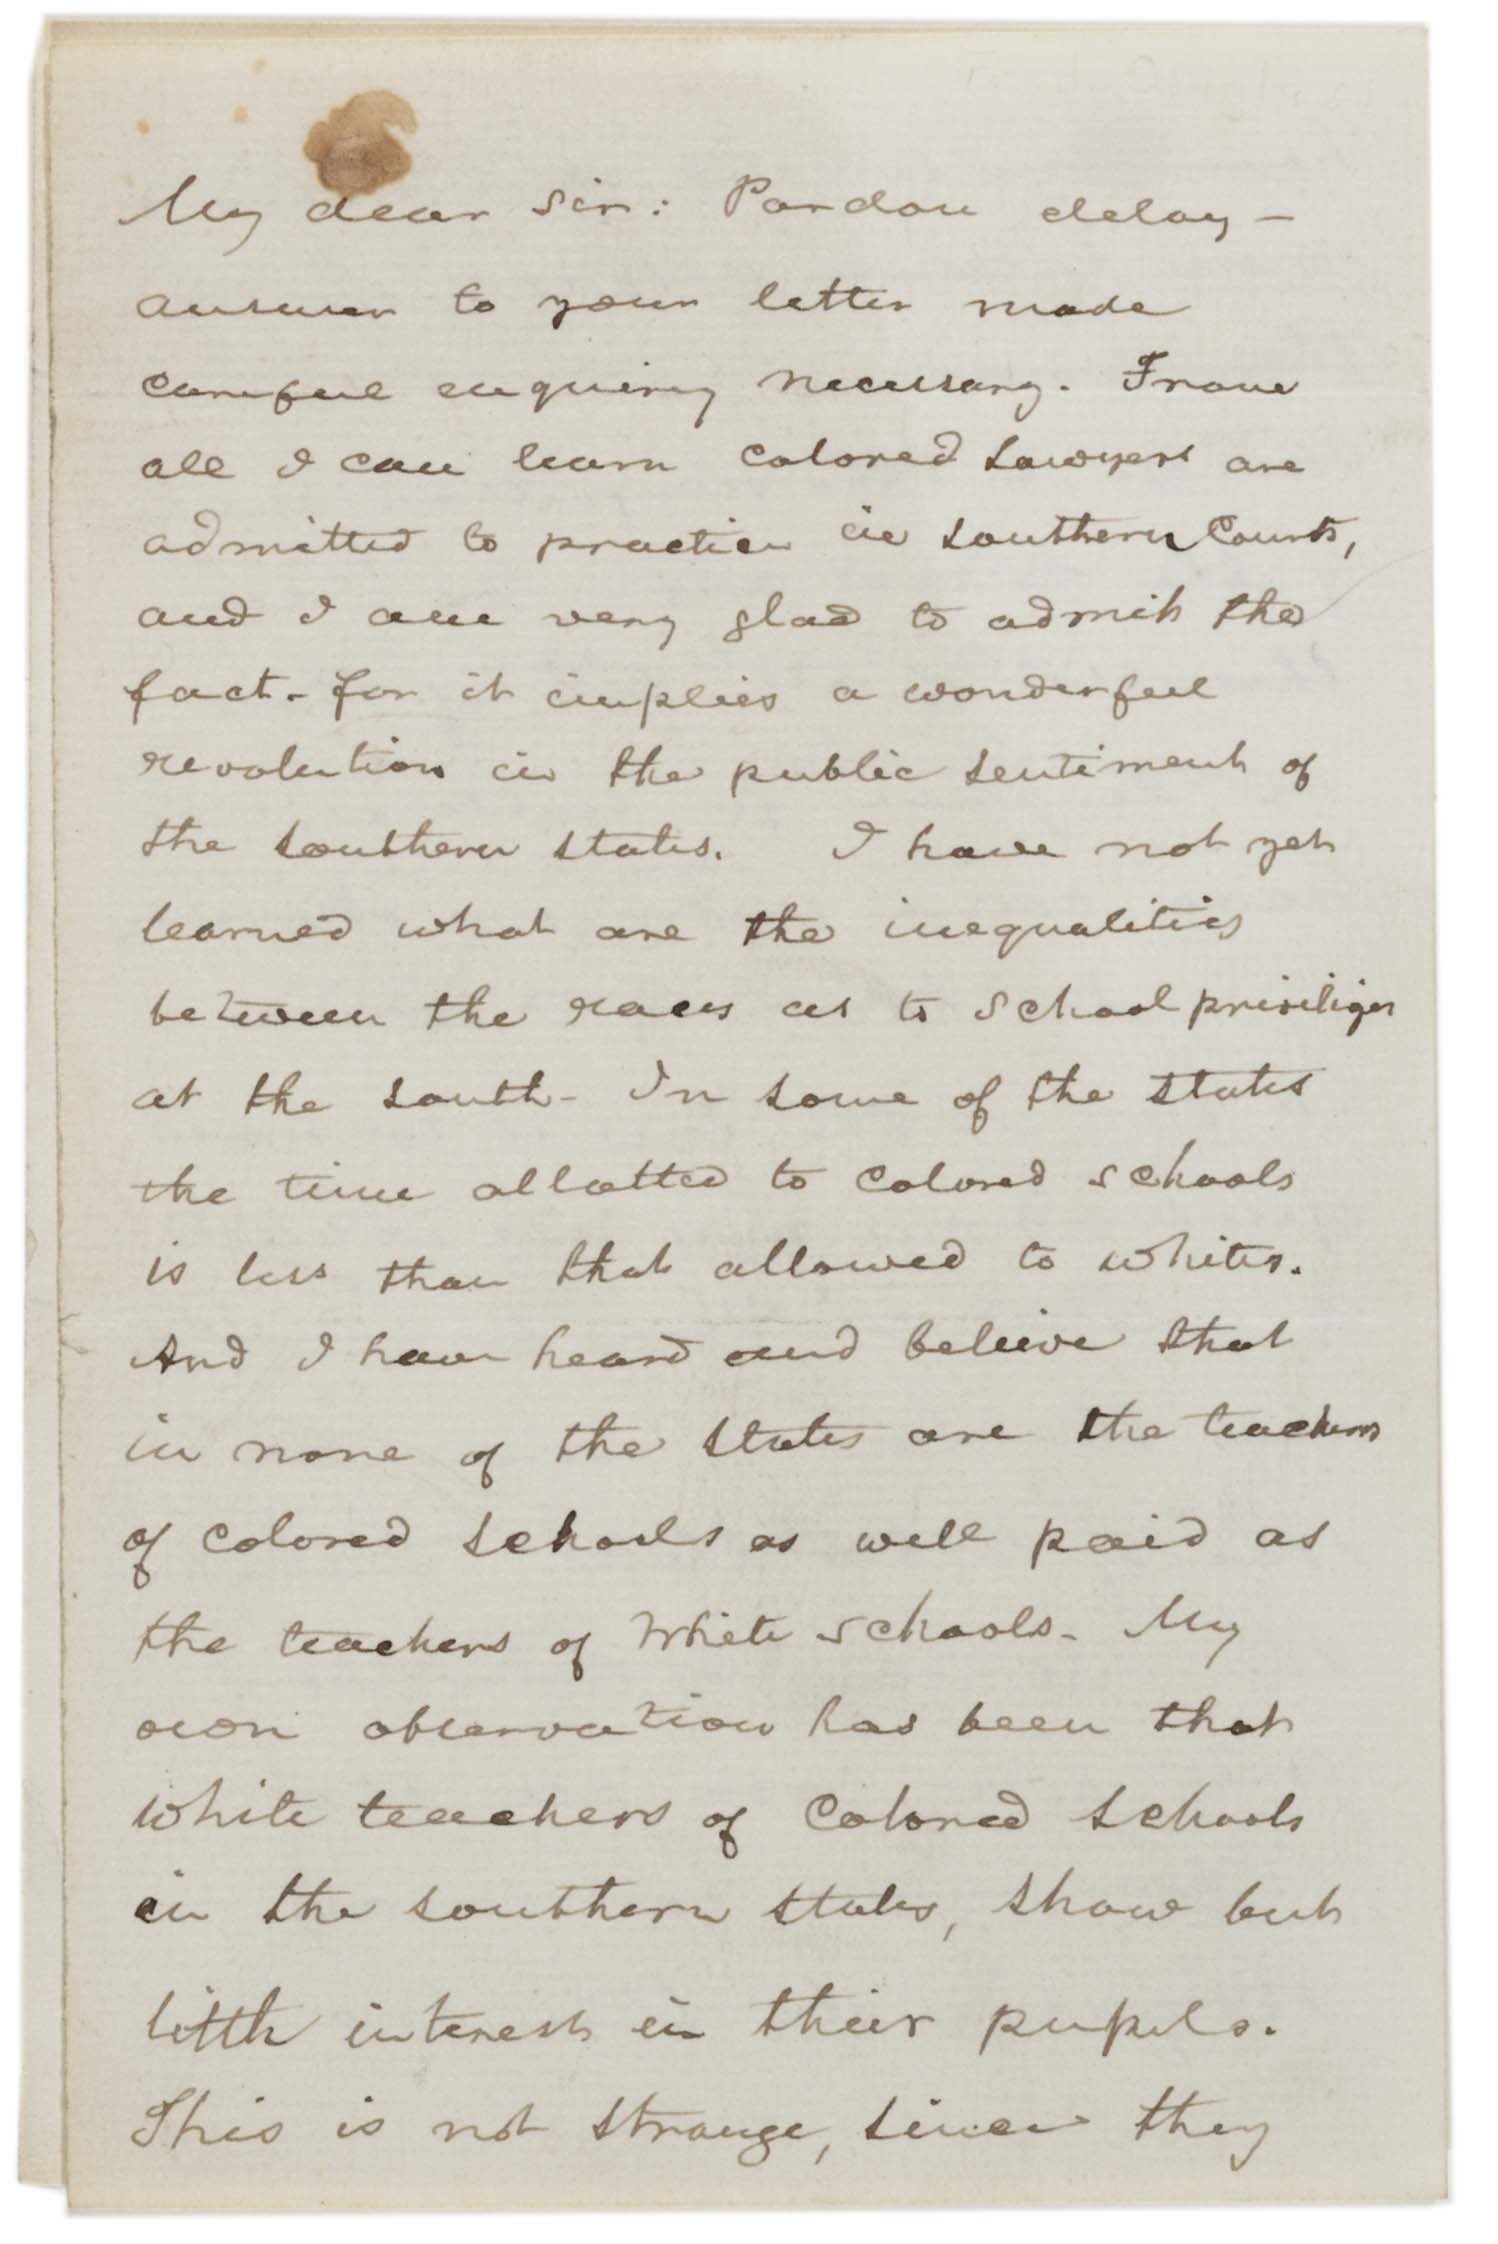 My dear Sir: Pardon delay —
answer to your letter made
careful enquiry necessary. From
all I can learn colored Lawyers are
admitted to practice in Southern Courts,
and I am very glad to admit the
fact - for it implies a wonderful
revolution in the public sentiment of
the Southern States. I have not yet
learned what are the inequalities
between the races as to School priviliges
at the South - In some of the States
the time allotted to Colored Schools
is less than that allowed to whites.
And I have heard and believe that
in none of the States are the teachers
of Colored Schools as well paid as
the teachers of White Schools - My
own observation has been that
White teachers of Colored Schools
in the Southern States, show but
little interest in their pupils.
This is not strange, since they